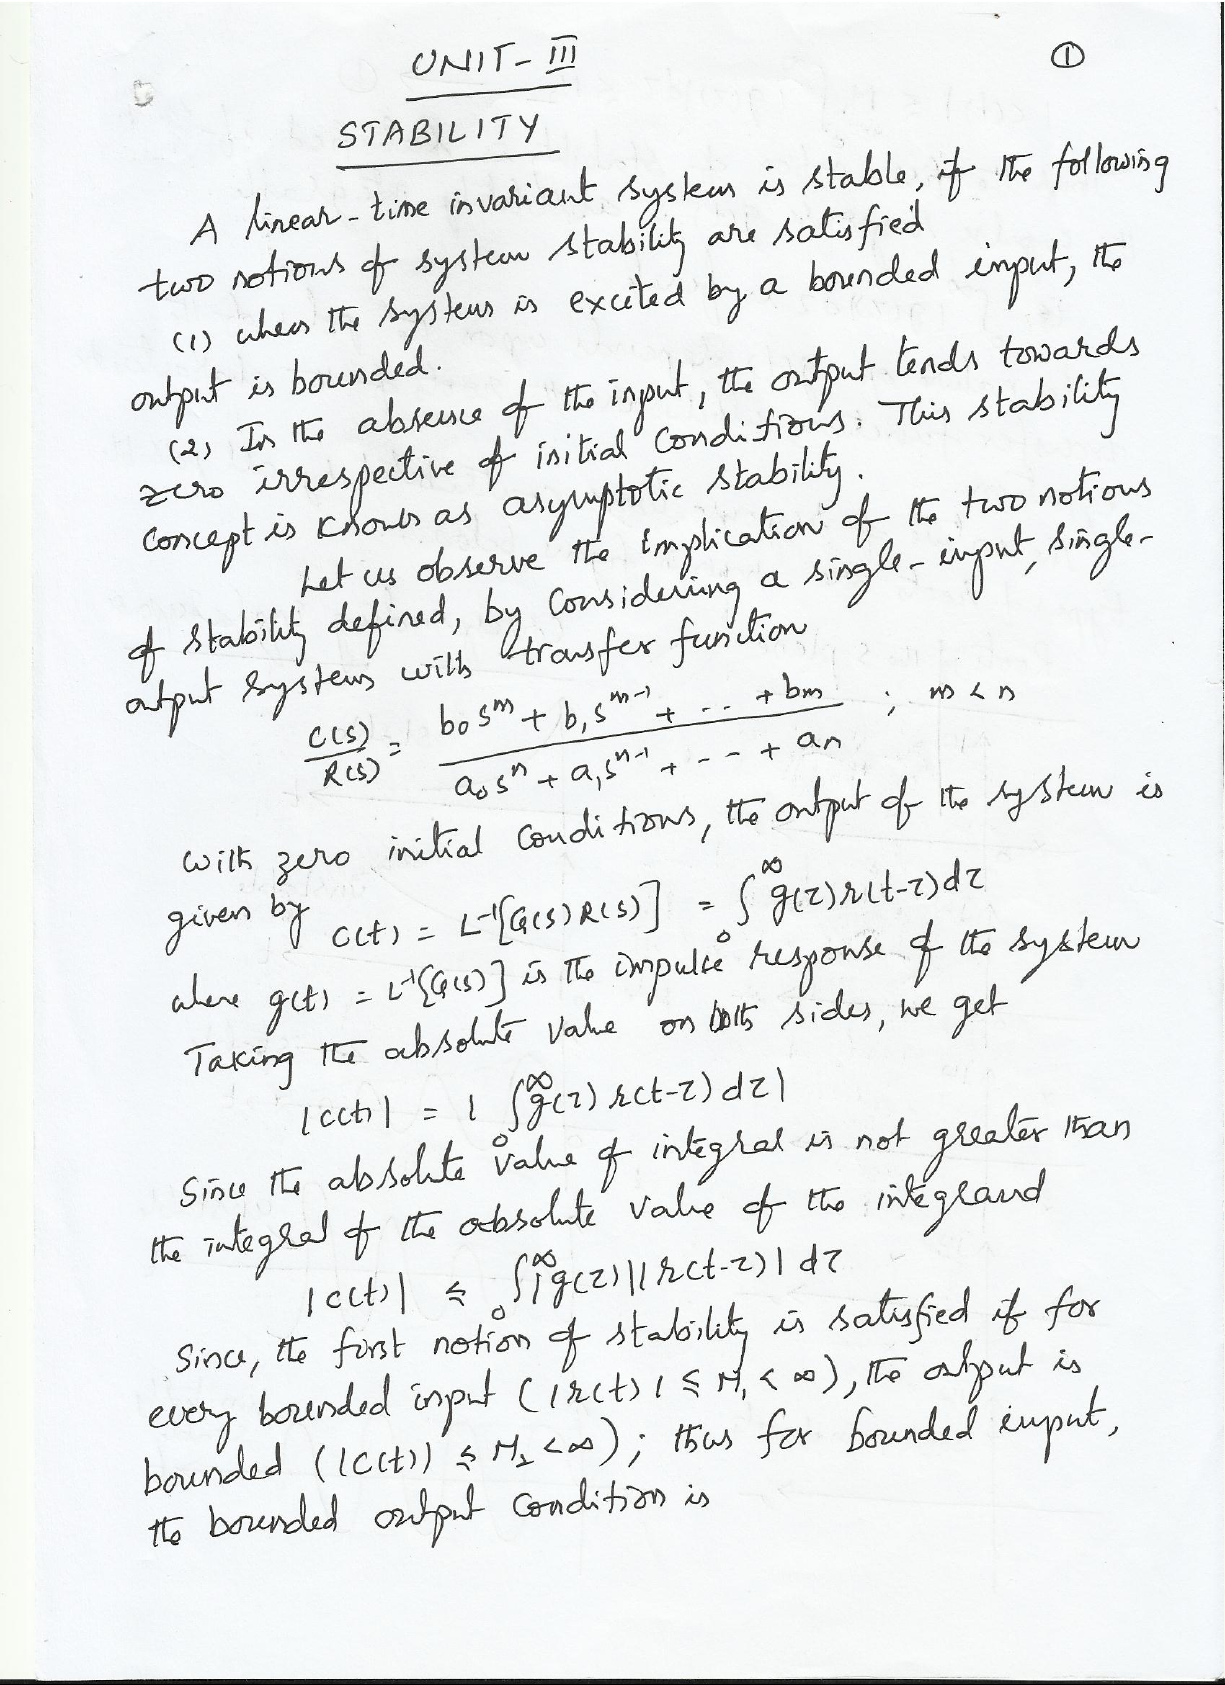 UNIT-III
①
STABILITY
A linear-time invariant system is stable, if the following
two notions of system stability are satisfied
(1) when the system is excited by a bounded input, the
output is bounded.
(2) In the absence of the input, the output tends towards
zero irrespective of initial conditions. This stability
concept is known as asymptotic stability.
Let us observe the implication of the two notions
of stability defined, by considering a single-input, single-
output system with transfer function
C(s)/R(s) = (b₀sᵐ + b₁sᵐ⁻¹ + .. + bm)/(a₀sⁿ + a₁sⁿ⁻¹ + -- + an) ; m < n
with zero initial conditions, the output of the system is
given by
c(t) = L⁻¹[G(s)R(s)] = ∫₀^∞ g(τ)r(t-τ)dτ
where g(t) = L⁻¹[G(s)] is the impulse response of the system
Taking the absolute value on both sides, we get
|c(t)| = | ∫₀^∞ g(τ) r(t-τ) dτ|
Since the absolute value of integral is not greater than
the integral of the absolute value of the integrand
|c(t)| ≤ ∫₀^∞ |g(τ)||r(t-τ)| dτ
Since, the first notion of stability is satisfied if for
every bounded input (|r(t)| ≤ M₁ < ∞), the output is
bounded (|c(t)| ≤ M₂ < ∞); thus for bounded input,
the bounded output condition is